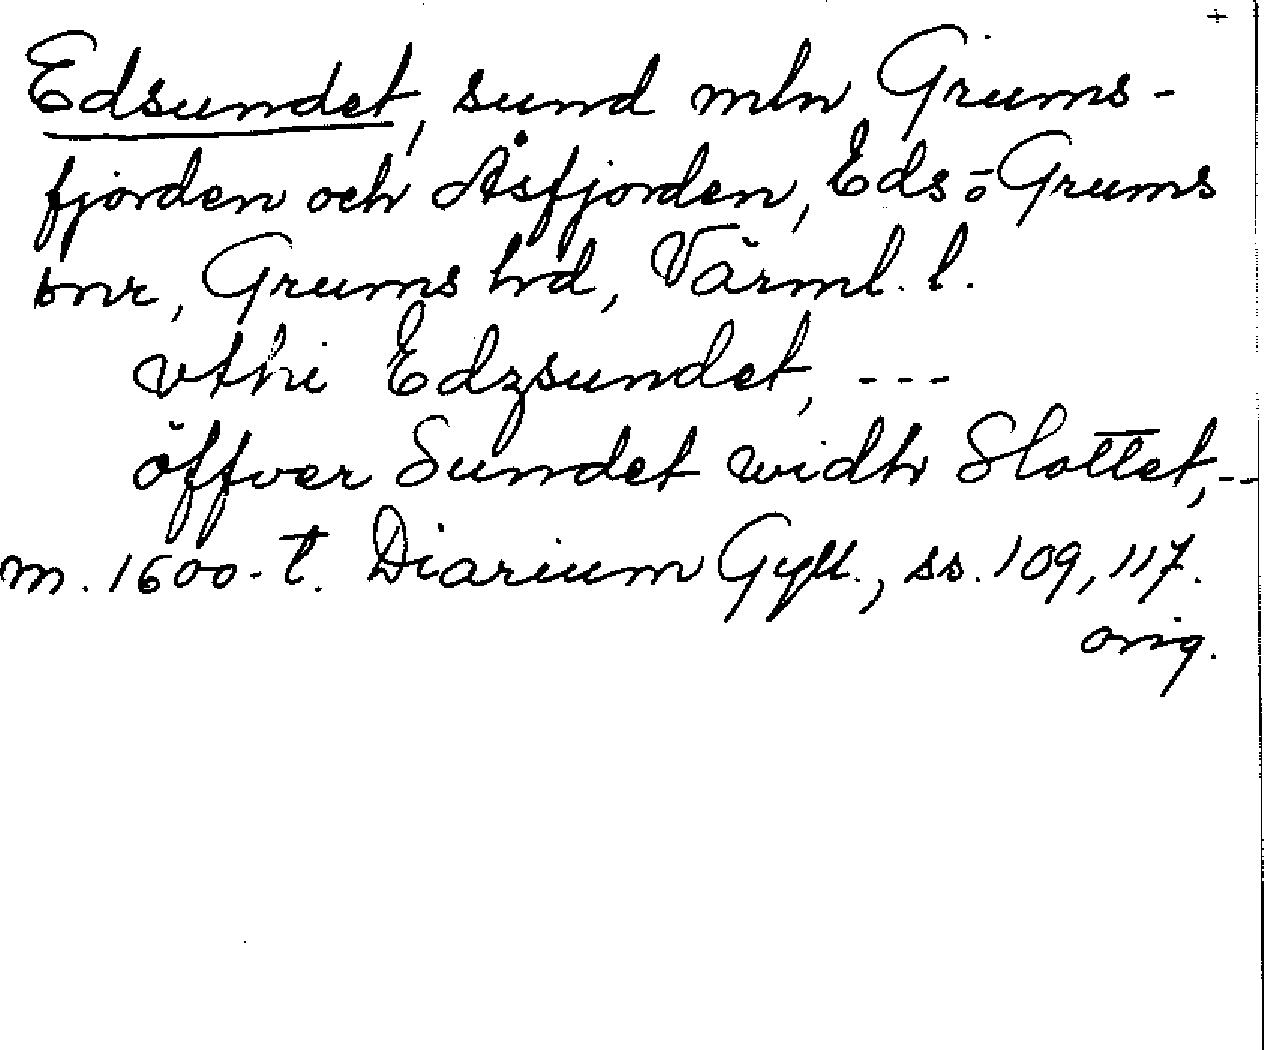 +
Edsundet, sund mln Grums-
fjorden och Åsfjorden, Eds o Grums
snr, Grums hd, Värml. l.
vthi Edzsundet, ---
öffver Sundet widh Slottet, --
m. 1600-t. Diarium Gyll., ss. 109, 117.
orig.